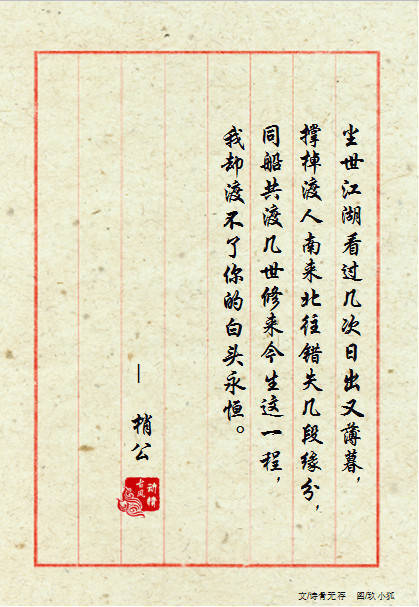 尘世江湖看过几次日出又薄暮，
撑棹渡人南来北往错失几段缘分，
同船共渡几世修来今生这一程，
我却渡不了你的白头永恒。
—梢公
古风
动情
文/诗骨无存 图/玖小狐